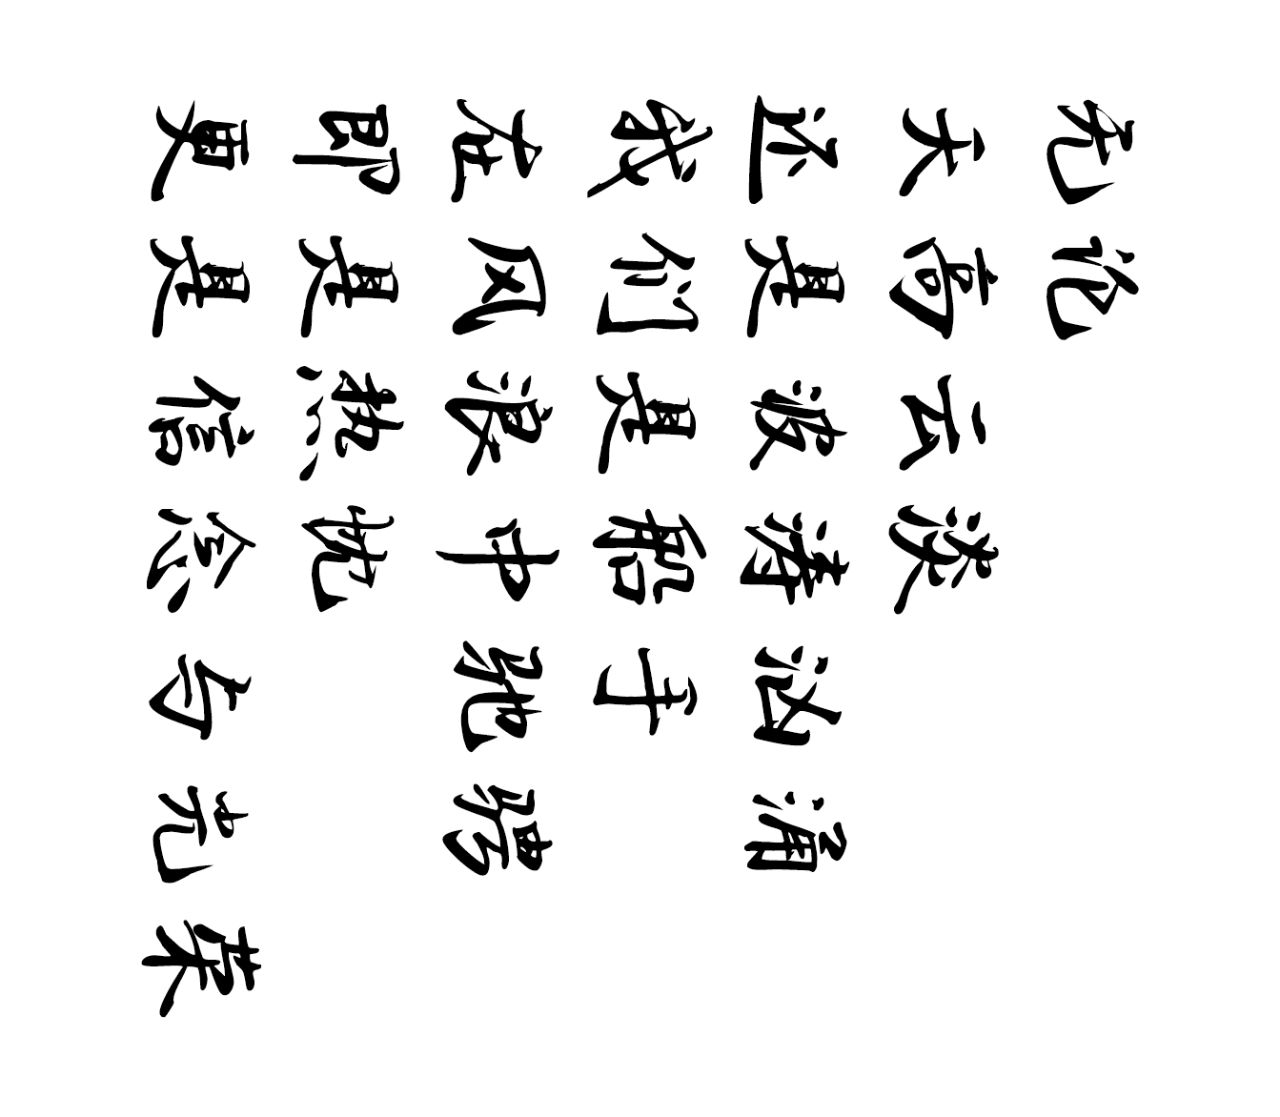 无论
天高云淡
还是波涛汹涌
我们是船手
在风浪中驰骋
即是热忱
更是信念与光荣